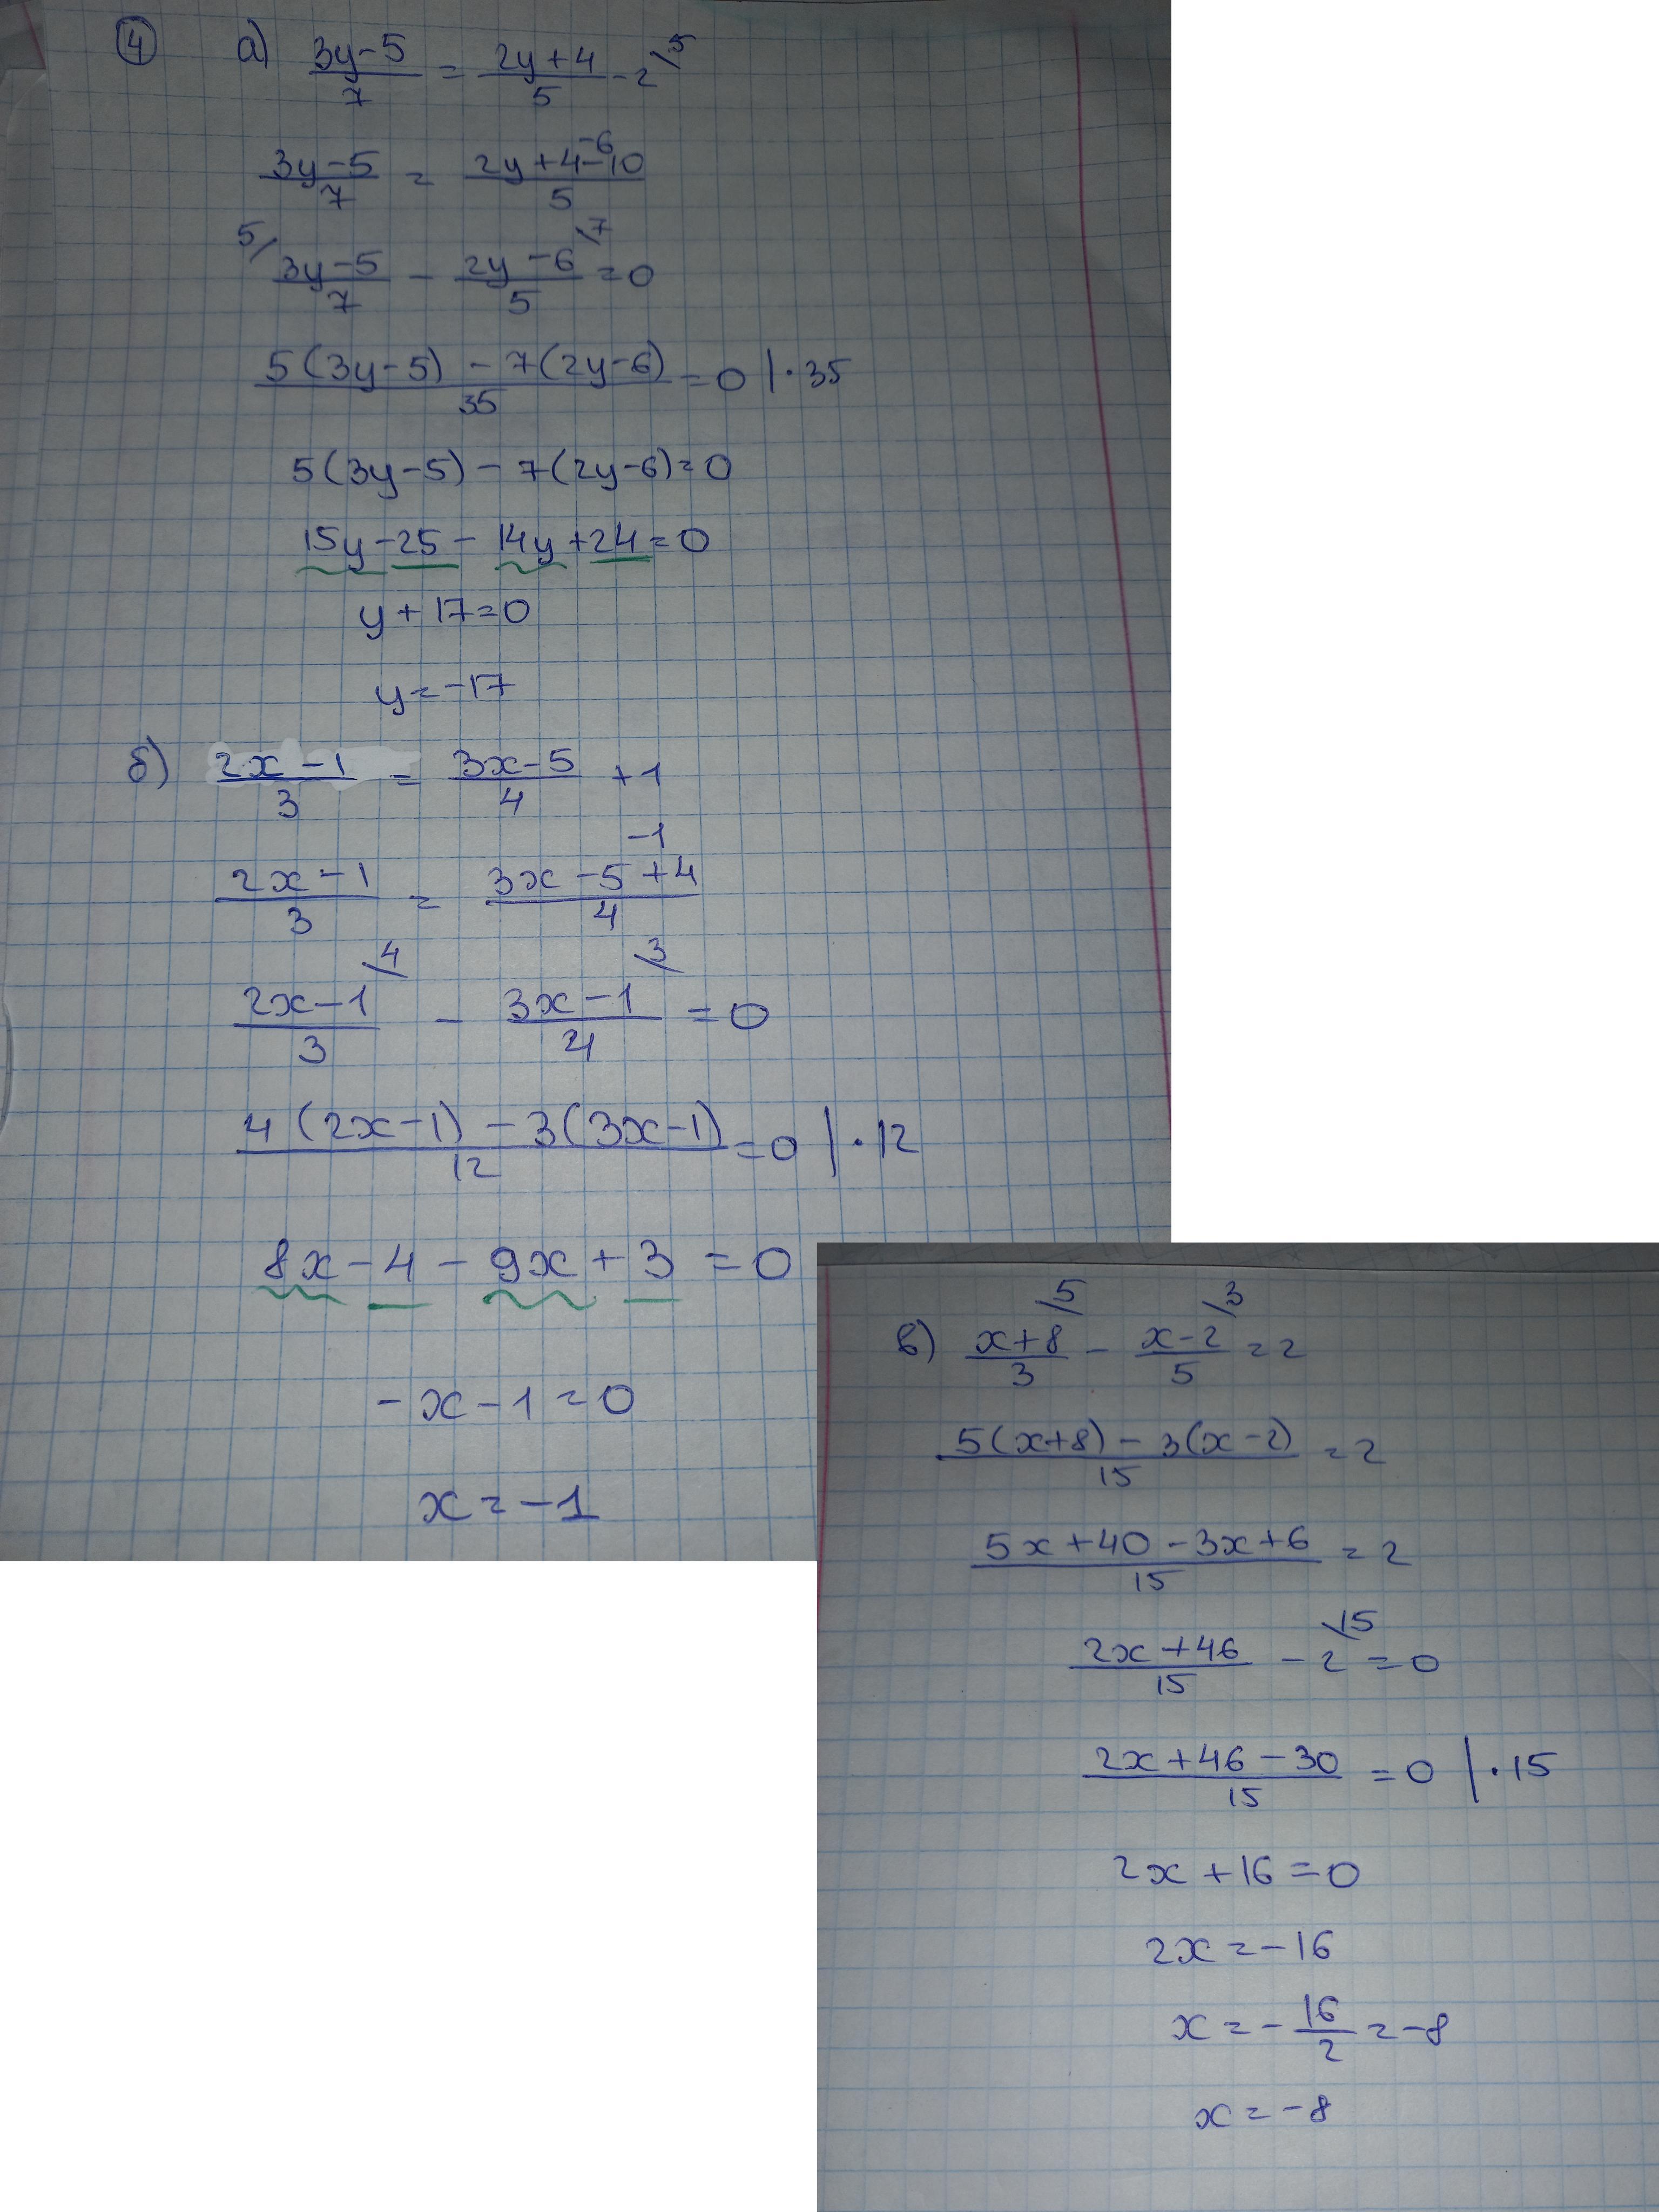 ④ а) (3y-5)/7 = (2y+4)/5 - 2 \5
(3y-5)/7 = (2y+4-10)/5 -6
5/ (3y-5)/7 - (2y-6)/5 \7 = 0
(5(3y-5) - 7(2y-6))/35 = 0 | · 35
5(3y-5) - 7(2y-6) = 0
15y - 25 - 14y + 24 = 0
y + 17 = 0
y = -17
б) (2x-1)/3 = (3x-5)/4 + 1
(2x-1)/3 = (3x-5+4)/4 -1
(2x-1)/3 \4 - (3x-1)/4 \3 = 0
(4(2x-1) - 3(3x-1))/12 = 0 | · 12
8x - 4 - 9x + 3 = 0
-x - 1 = 0
x = -1
в) (x+8)/3 \5 - (x-2)/5 \3 = 2
(5(x+8) - 3(x-2))/15 = 2
(5x+40-3x+6)/15 = 2
(2x+46)/15 - 2 \15 = 0
(2x+46-30)/15 = 0 | · 15
2x + 16 = 0
2x = -16
x = - 16/2 = -8
x = -8